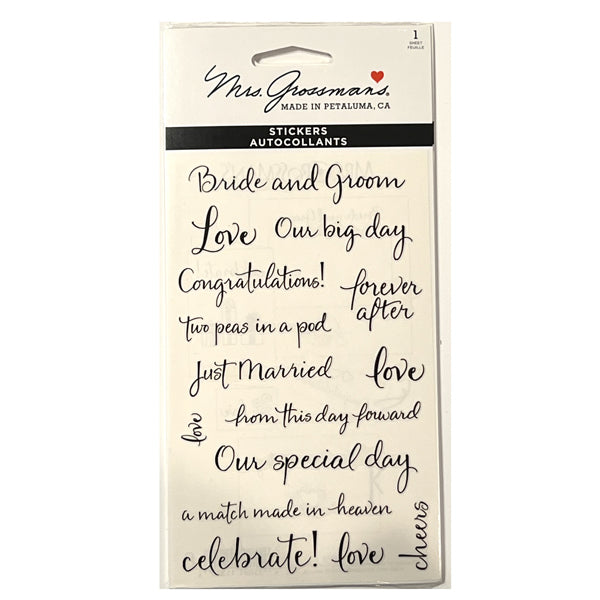 1
SHEET
FEUILLE
Mrs. Grossman's®
MADE IN PETALUMA, CA
STICKERS
AUTOCOLLANTS
Bride and Groom
Love Our big day
Congratulations!
forever
after
two peas in a pod
Just Married love
love
from this day forward
Our special day
a match made in heaven
cheers
celebrate! love